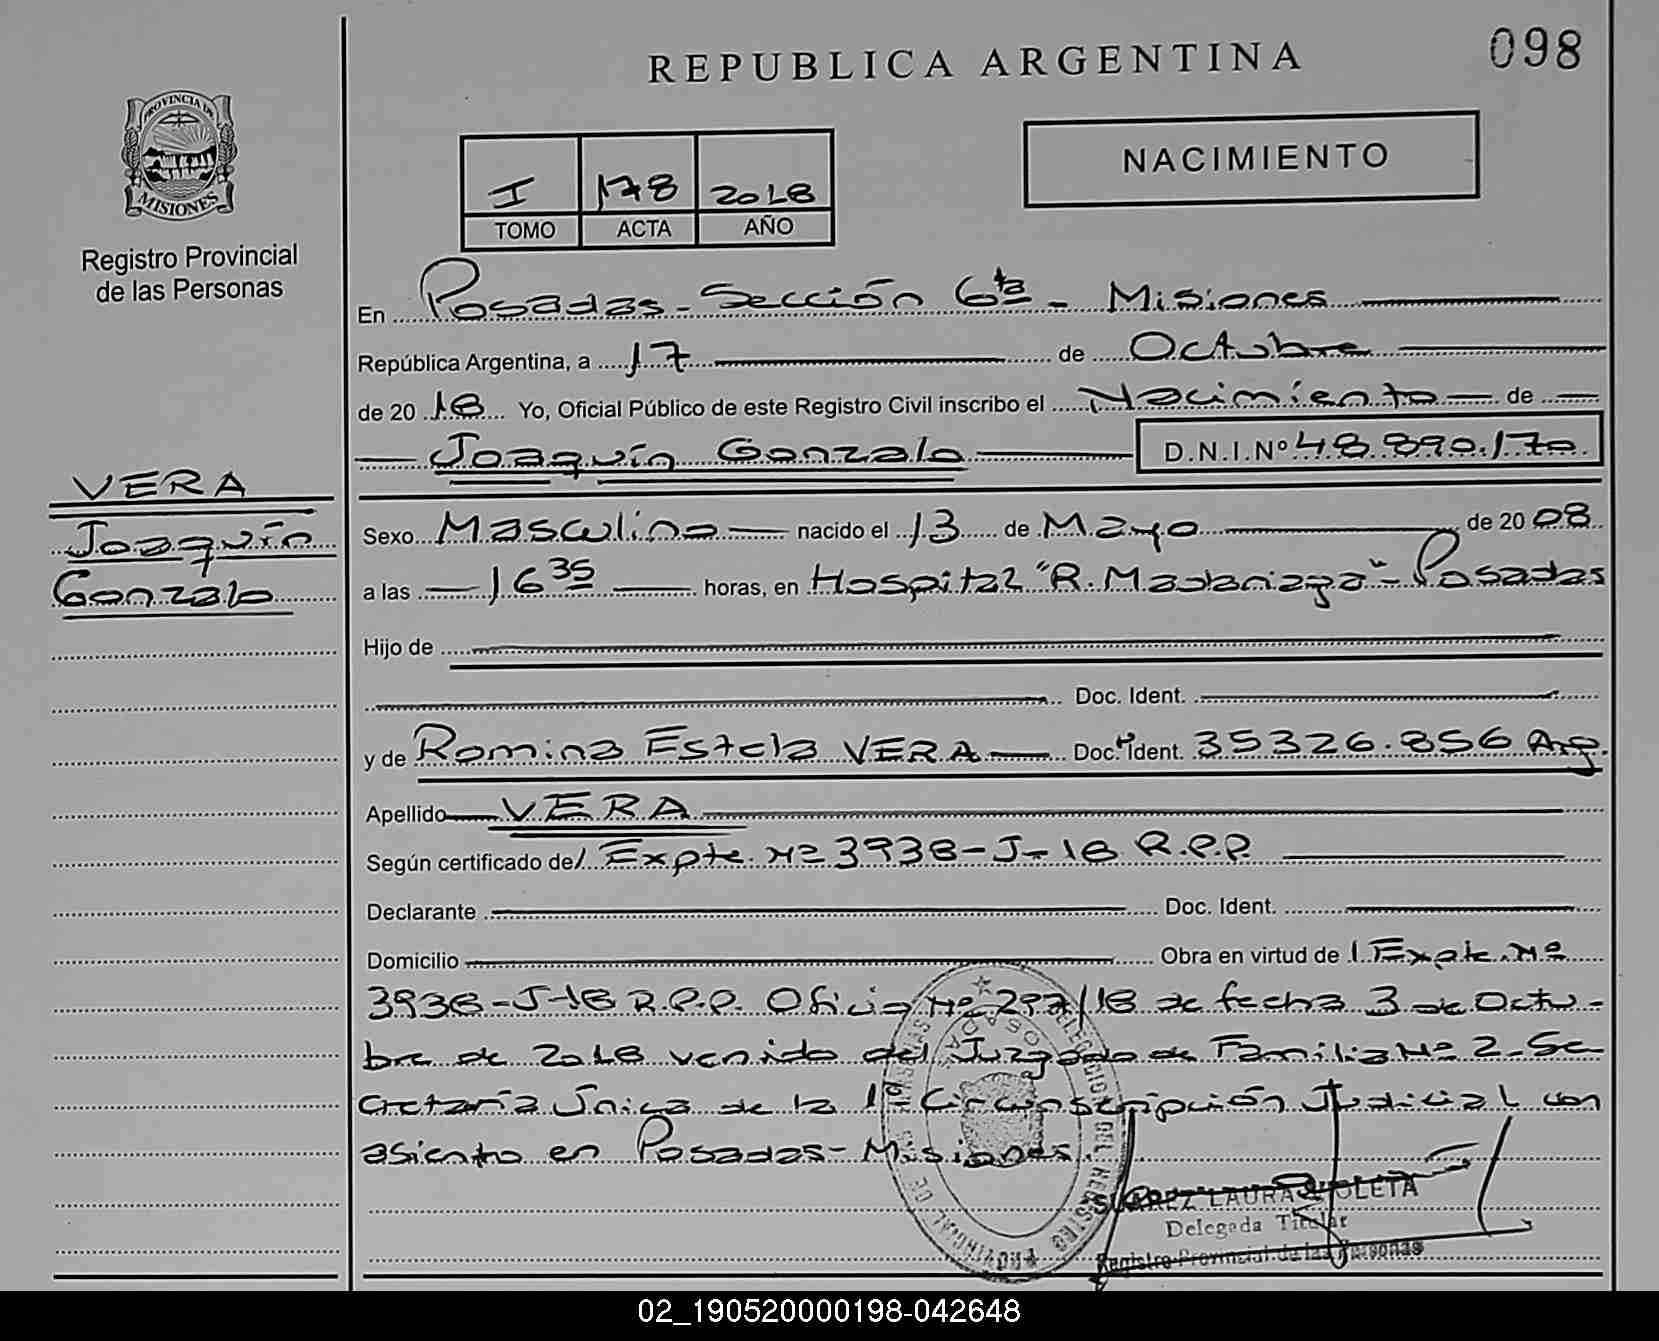 REPUBLICA ARGENTINA
098
PROVINCIA DE
MISIONES
Registro Provincial
de las Personas
NACIMIENTO
I 178 2018
TOMO ACTA AÑO
En Posadas - Sección 6ta - Misiones
República Argentina, a 17 de Octubre
de 20 18 Yo, Oficial Público de este Registro Civil inscribo el Nacimiento de
Joaquín Gonzalo D.N.I.Nº 48.890.170
VERA
Joaquín
Gonzalo
Sexo Masculino nacido el 13 de Mayo de 20 08
a las 16 35 horas, en Hospital "R. Madariaga" - Posadas
Hijo de
Doc. Ident.
y de Romina Estela VERA Doc. Ident. 35326.856 Arg.
Apellido VERA
Según certificado de/ Expte. Nº 3938-J-18 R.P.P.
Declarante Doc. Ident.
Domicilio Obra en virtud de / Expte. Nº
3938-J-18 R.P.P. Oficio Nº 297/18 de fecha 3 de Octu-
bre de 2018 venido del Juzgado de Familia Nº 2 - Se-
cretaría Única de la 1ª Circunscripción Judicial con
asiento en Posadas - Misiones.
SUAREZ LAURA VIOLETA
Delegada Titular
Registro Provincial de las Personas
02_190520000198-042648